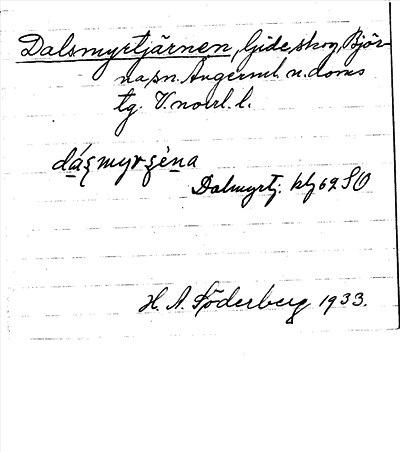 Dalsmyrtjärnen, Gideå skog, Björ-
na sn. Ångerml. n. doms
tg. V. norrl. l.
Dalmyrtj. kbl 62 SO
H. A. Söderberg 1933.